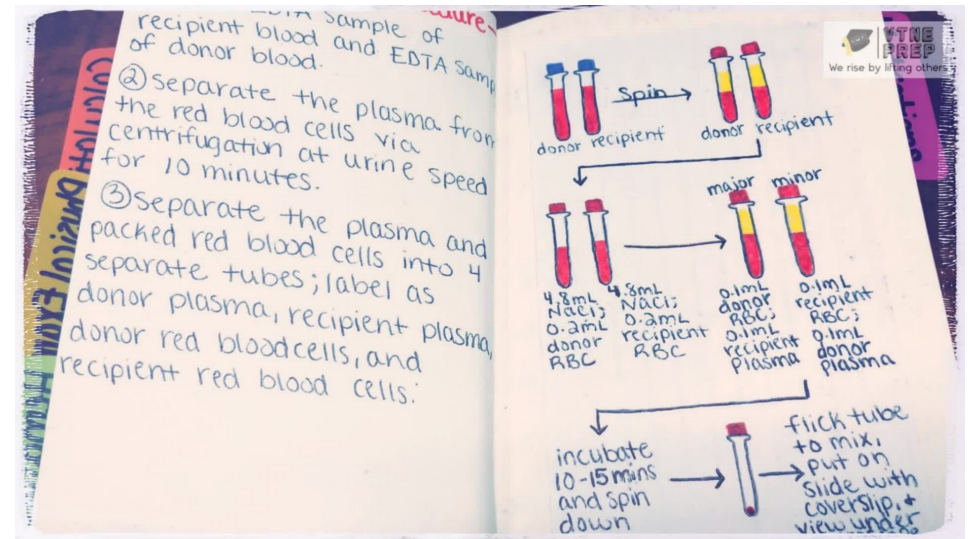 EDTA sample of
recipient blood and EDTA samp
of donor blood.
② Separate the plasma from
the red blood cells via
centrifugation at urine speed
for 10 minutes.
③ Separate the plasma and
packed red blood cells into 4
separate tubes; label as
donor plasma, recipient plasma,
donor red blood cells, and
recipient red blood cells.
VTNE
PREP
We rise by lifting others
Spin
donor recipient
donor recipient
major minor
4.8mL
NaCl;
0.2mL
donor
RBC
4.8mL
NaCl;
0.2mL
recipient
RBC
0.1mL
donor
RBC;
0.1mL
recipient
plasma
0.1mL
recipient
RBC;
0.1mL
donor
plasma
incubate
10-15 mins
and spin
down
flick tube
to mix,
put on
slide with
coverslip, +
view under